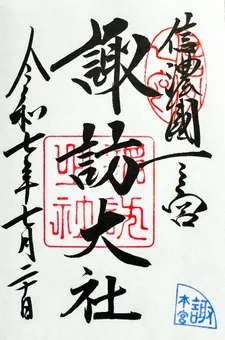 信濃國一之宮
諏訪大社
令和七年七月二十日
諏方大明神
諏
本宮